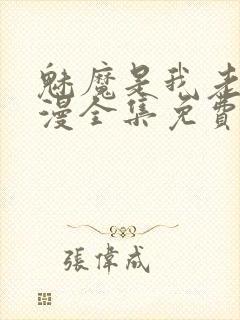 魅魔是我老
漫全集免費
張偉成